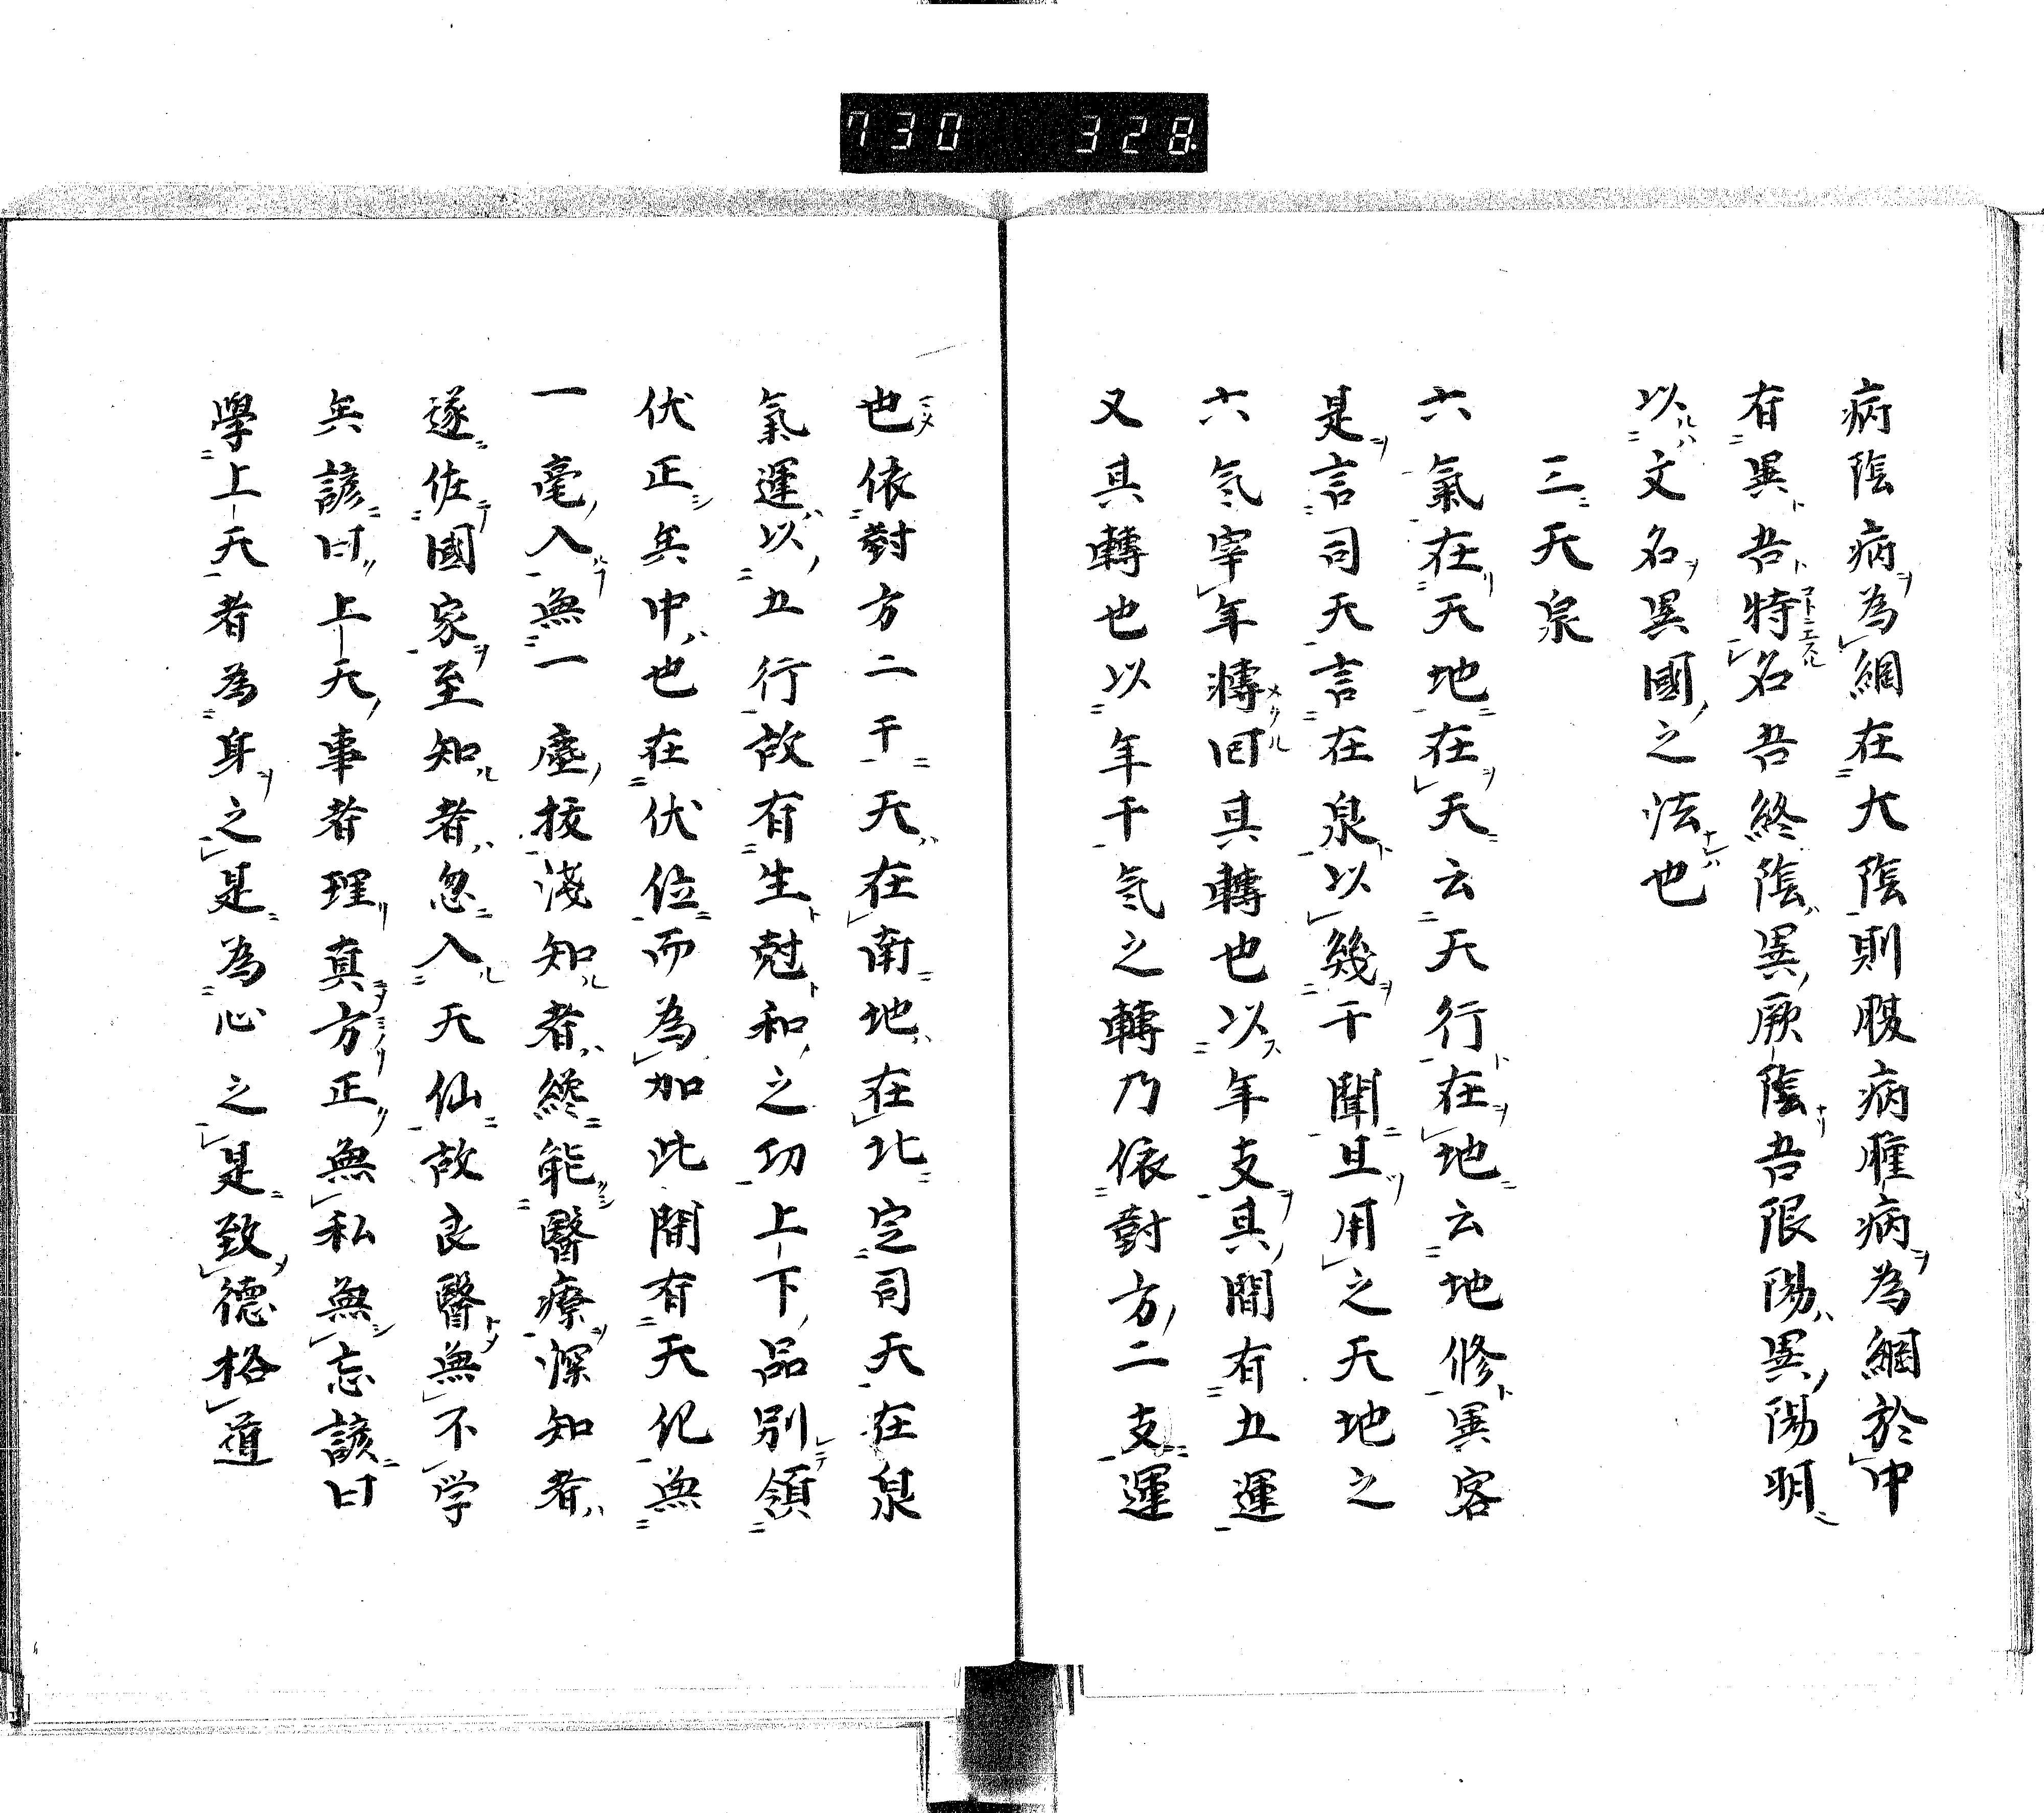 730 328
病陰病為綱在大陰則腹病腫病為綱於中
有異吾特名吾終陰異厥陰吾限陽異陽明
以文名異國之法也
三天泉
六氣在天地在天云天行在地云地修異客
是言司天言在泉以幾干聞且用之天地之
六氣宰年轉曰其轉也以年支其間有五運
又其轉也以年干氣之轉乃依對方二支運
也依對方二干天在南地在北定司天在泉
氣運以五行故有生尅和之功上下品別領
伏正矣中也在伏位而為加此間有天化無
一毫入無一塵授淺知者纔能醫療深知者
遂佐國家至知者忽入天仙故良醫無不学
矣諺曰上天事者理真方正無私無忘諺曰
學上天者為身之是為心之是致德格道